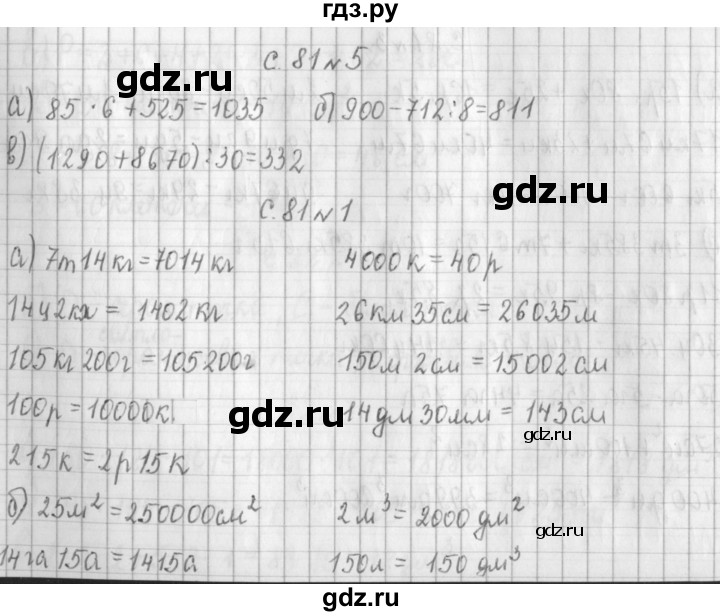 гдз.ру
с. 81 № 5
gdz.ru
а) 85 · 6 + 525 = 1035 б) 900 - 712 : 8 = 811
в) (1290 + 8670) : 30 = 332
gdz.ru
с. 81 № 1
а) 7т 14 кг = 7014 кг 4000 к = 40 р
14 ц 2 кг = 1402 кг 26 км 35 см = 26035 м
105 кг 200 г = 105200 г 150 м 2 см = 15002 см
100 р = 10000 к 14 дм 30 мм = 143 см
gdz.ru
gdz.ru
215 к = 2 р 15 к
б) 25 м² = 250000 см² 2 м³ = 2000 дм²
gdz.ru
14 га 15 а = 1415 а 150 л = 150 дм³
gdz.ru